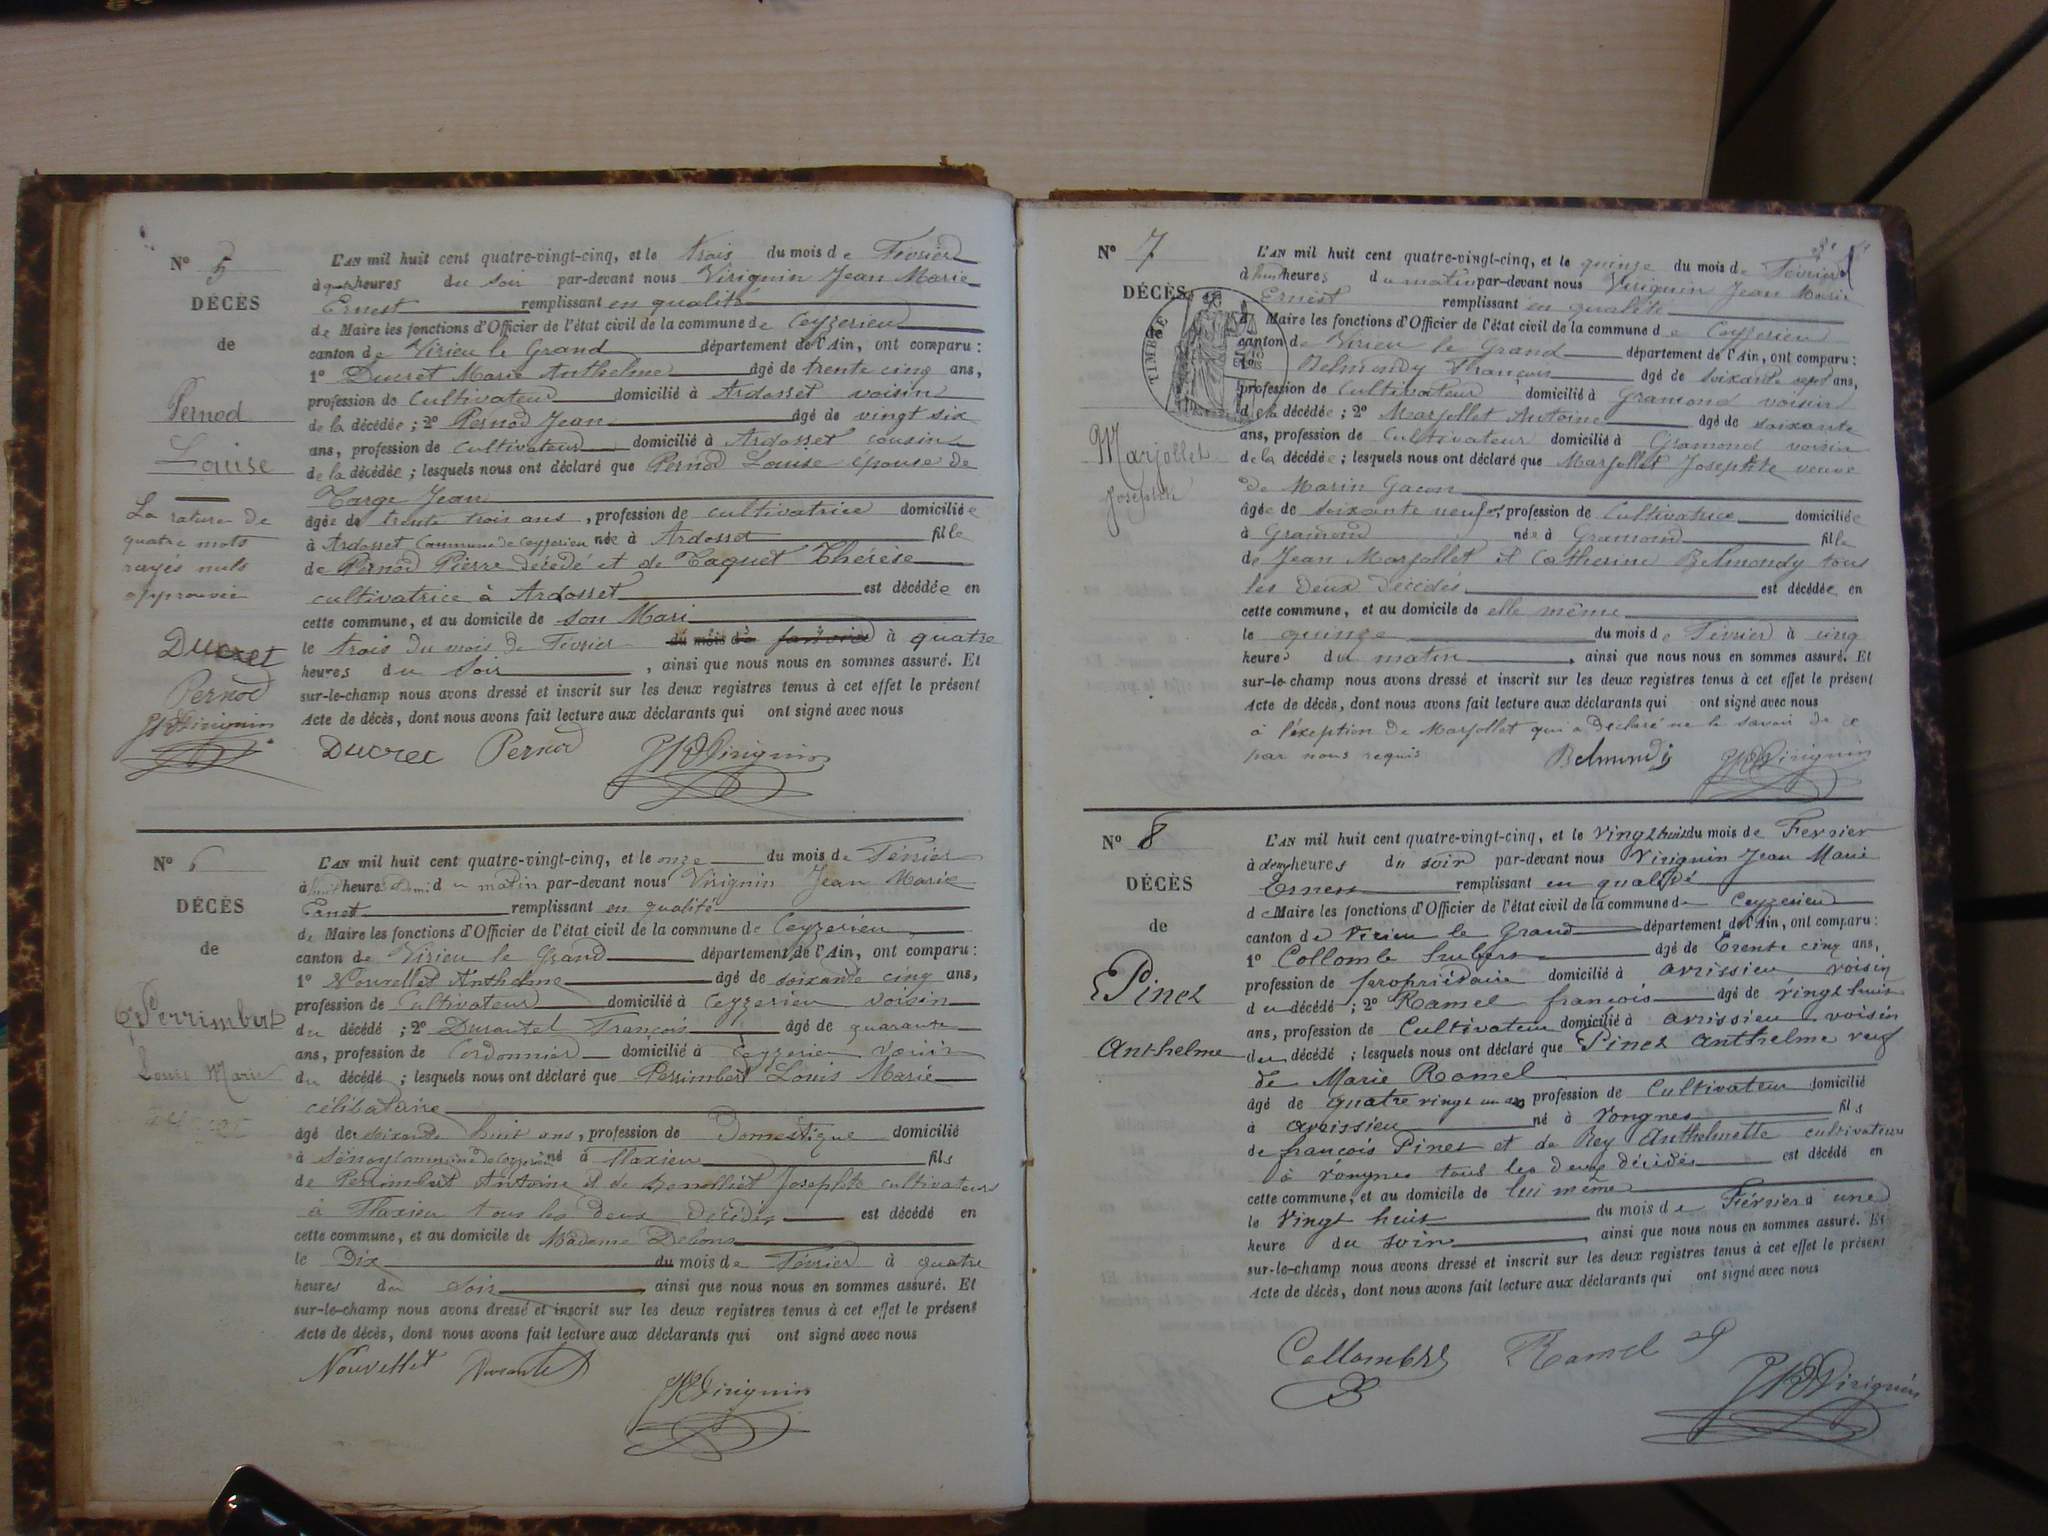 N° 5
DÉCÈS
de
Pernod
Louise
La rature de
quatre mots
rayés nuls
approuvée
Ducret
Pernod
Virignin
L'AN mil huit cent quatre-vingt-cinq, et le trois du mois de Février
à heures du soir par-devant nous Virignin Jean Marie
Ernest remplissant en qualité
de Maire les fonctions d'Officier de l'état civil de la commune de Ceyzerieu
canton de Virieu le Grand département de l'Ain, ont comparu :
1° Ducret Marie Anthelme âgé de trente cinq ans,
profession de Cultivateur domicilié à Ardosset voisin
de la décédée ; 2° Pernod Jean âgé de vingt six
ans, profession de cultivateur domicilié à Ardosset cousin
de la décédée ; lesquels nous ont déclaré que Pernod Louise épouse de
Targe Jean
âgée de trente trois ans, profession de cultivatrice domiciliée
à Ardosset Commune de Ceyzerieu née à Ardosset fille
de Pernod Pierre décédé et de Taquet Thérèse
cultivatrice à Ardosset est décédée en
cette commune, et au domicile de son Mari
le trois du mois de Février du mois de à quatre
heures du soir, ainsi que nous nous en sommes assuré. Et
sur-le-champ nous avons dressé et inscrit sur les deux registres tenus à cet effet le présent
Acte de décès, dont nous avons fait lecture aux déclarants qui ont signé avec nous
Ducret Pernod Virignin
N° 6
DÉCÈS
de
Perrimbert
Louis Marie
L'AN mil huit cent quatre-vingt-cinq, et le onze du mois de Février
à heures du matin par-devant nous Virignin Jean Marie
Ernet remplissant en qualité
de Maire les fonctions d'Officier de l'état civil de la commune de Ceyzerieu
canton de Virieu le Grand département de l'Ain, ont comparu :
1° Nouvellet Anthelme âgé de soixante cinq ans,
profession de Cultivateur domicilié à Ceyzerieu voisin
du décédé ; 2° Durantet François âgé de quarante
ans, profession de Cordonnier domicilié à Ceyzerieu voisin
du décédé ; lesquels nous ont déclaré que Perrimbert Louis Marie
célibataire
âgé de soixante huit ans, profession de Domestique domicilié
à commune de Ceyzerieu né à flaxieu fils
de Perrimbert Antoine et de Josephte cultivateurs
à Flaxieu tous les deux décédés est décédé en
cette commune, et au domicile de Madame Debons
le Dix du mois de Février à quatre
heures du soir ainsi que nous nous en sommes assuré. Et
sur-le-champ nous avons dressé et inscrit sur les deux registres tenus à cet effet le présent
Acte de décès, dont nous avons fait lecture aux déclarants qui ont signé avec nous
Nouvellet Durantet Virignin
N° 7
DÉCÈS
de
TIMBRE
Marjollet
Josephte
L'AN mil huit cent quatre-vingt-cinq, et le quinze du mois de Février
à huit heures du matin par-devant nous Virignin Jean Marie
Ernest remplissant en qualité
de Maire les fonctions d'Officier de l'état civil de la commune de Ceyzerieu
canton de Virieu le Grand département de l'Ain, ont comparu :
1° Belmondy François âgé de soixante sept ans,
profession de Cultivateur domicilié à Gramond voisin
de la décédée ; 2° Marjollet Antoine âgé de soixante
ans, profession de Cultivateur domicilié à Gramond voisin
de la décédée ; lesquels nous ont déclaré que Marjollet Josephte veuve
de Marin Gacon
âgée de soixante neuf, profession de Cultivatrice domiciliée
à Gramond née à Gramond fille
de Jean Marjollet et Catherine Belmondy tous
les deux décédés est décédée en
cette commune, et au domicile de elle même
le quinze du mois de Février à cinq
heures du matin, ainsi que nous nous en sommes assuré. Et
sur-le-champ nous avons dressé et inscrit sur les deux registres tenus à cet effet le présent
Acte de décès, dont nous avons fait lecture aux déclarants qui ont signé avec nous
à l'éxeption de Marjollet qui a déclaré ne le savoir de ce
par nous requis Belmondy Virignin
N° 8
DÉCÈS
de
Pinet
Anthelme
L'AN mil huit cent quatre-vingt-cinq, et le vingt huit du mois de Fevrier
à heures du soir par-devant nous Virignin Jean Marie
Ernest remplissant en qualité
de Maire les fonctions d'Officier de l'état civil de la commune de Ceyzerieu
canton de Virieu le Grand département de l'Ain, ont comparu :
1° Collomb âgé de Trente cinq ans,
profession de propriétaire domicilié à avrissieu voisin
du décédé ; 2° Ramel françois âgé de vingt huit
ans, profession de Cultivateur domicilié à avrissieu voisin
du décédé ; lesquels nous ont déclaré que Pinet Anthelme veuf
de Marie Ramel
âgé de quatre vingt un ans profession de Cultivateur domicilié
à avrissieu né à Vongnes fils
de françois Pinet et de Rey Anthelmette cultivateurs
à Vongnes tous les deux décédés est décédé en
cette commune, et au domicile de lui même
le vingt huit du mois de Février à une
heure du soir, ainsi que nous nous en sommes assuré. Et
sur-le-champ nous avons dressé et inscrit sur les deux registres tenus à cet effet le présent
Acte de décès, dont nous avons fait lecture aux déclarants qui ont signé avec nous
Collomb Ramel Virignin